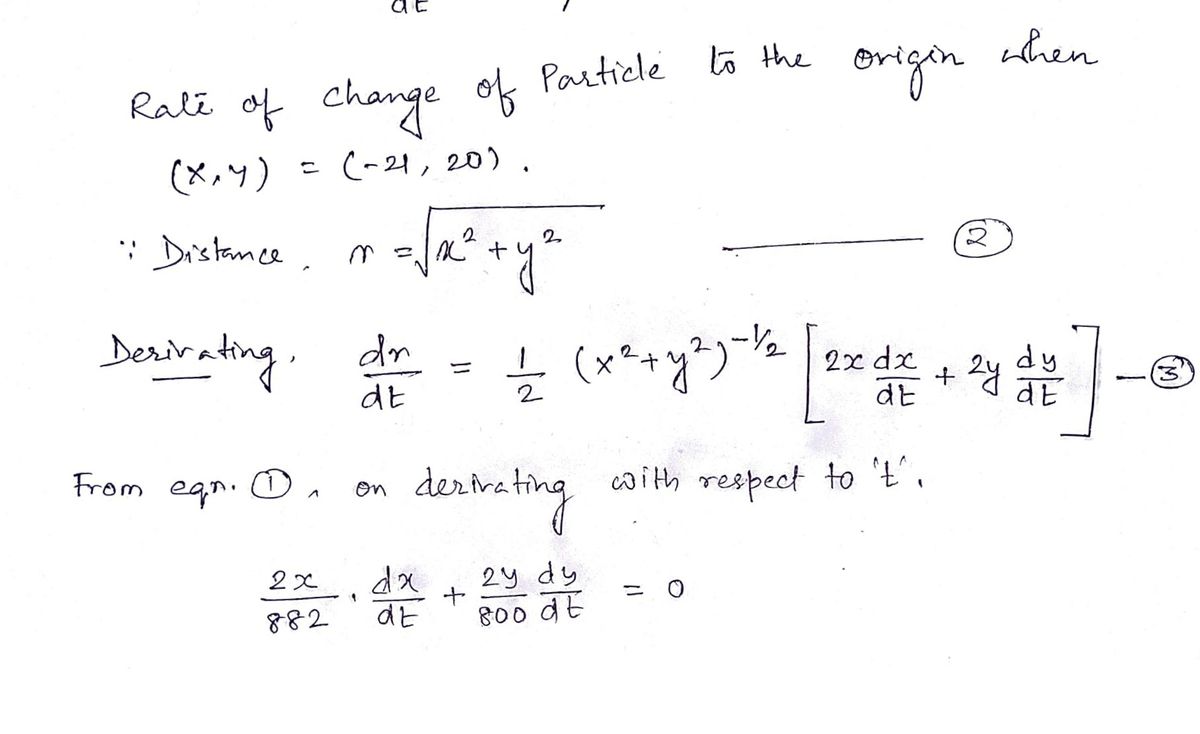 dt
Rate of change of Particle to the origin when
(x,y) = (-21, 20).
∵ Distance, r = √(x² + y²) ——— ②
Derivating, dr/dt = 1/2 (x²+y²)^(-1/2) [2x dx/dt + 2y dy/dt] — ③
From eqn. ①, on derivating with respect to 't',
2x/882 · dx/dt + 2y/800 dy/dt = 0